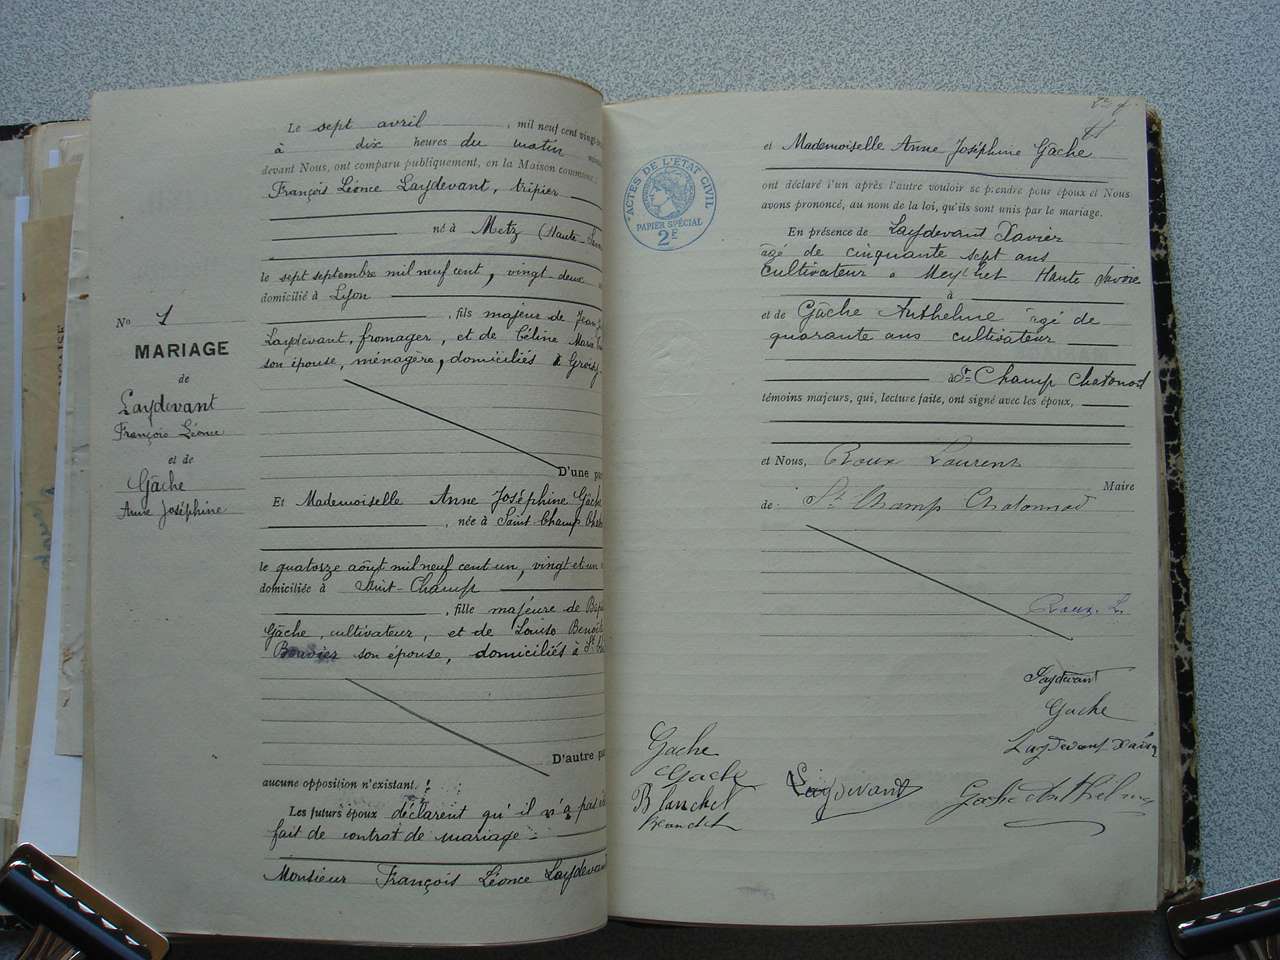 Le sept avril, mil neuf cent vingt
à dix heures du matin
devant Nous, ont comparu publiquement, en la Maison commune:
François Léonce Laydevant, tripier
né à Metz (Haute-
le sept septembre mil neuf cent, vingt-deux
domicilié à Lyon
, fils majeur de Jean
Laydevant, fromager, et de Céline Marie
son épouse, ménagère, domiciliés à Groisy
D'une pa
Et Mademoiselle Anne Joséphine Gâche
, née à Saint-Champ
le quatorze août mil neuf cent un, vingt et un
domiciliée à Saint-Champ
, fille majeure de
Gâche, cultivateur, et de Louise Benoit
Bouvier son épouse, domiciliés à St
D'autre pa
aucune opposition n'existant.
Les futurs époux déclarent qu'il n'a pas été
fait de contrat de mariage
Monsieur François Léonce Laydevant
No 1
MARIAGE
de
Laydevant
François Léonce
et de
Gâche
Anne Joséphine
ACTES DE L'ÉTAT CIVIL
PAPIER SPÉCIAL
2F
et Mademoiselle Anne Joséphine Gâche
ont déclaré l'un après l'autre vouloir se prendre pour époux et Nous
avons prononcé, au nom de la loi, qu'ils sont unis par le mariage.
En présence de Laydevant Xavier
âgé de cinquante sept ans
cultivateur à Haute Savoie
à
et de Gâche Anthelme âgé de
quarante ans cultivateur
à St Champ Chatonod
témoins majeurs, qui, lecture faite, ont signé avec les époux,
et Nous, Roux Laurent
Maire
de St Champ Chatonnod
Roux. L.
Laydevant
Gache
Laydevant Xavier
Gache
Gache
Blanchet
Laydevant
Gache Anthelme